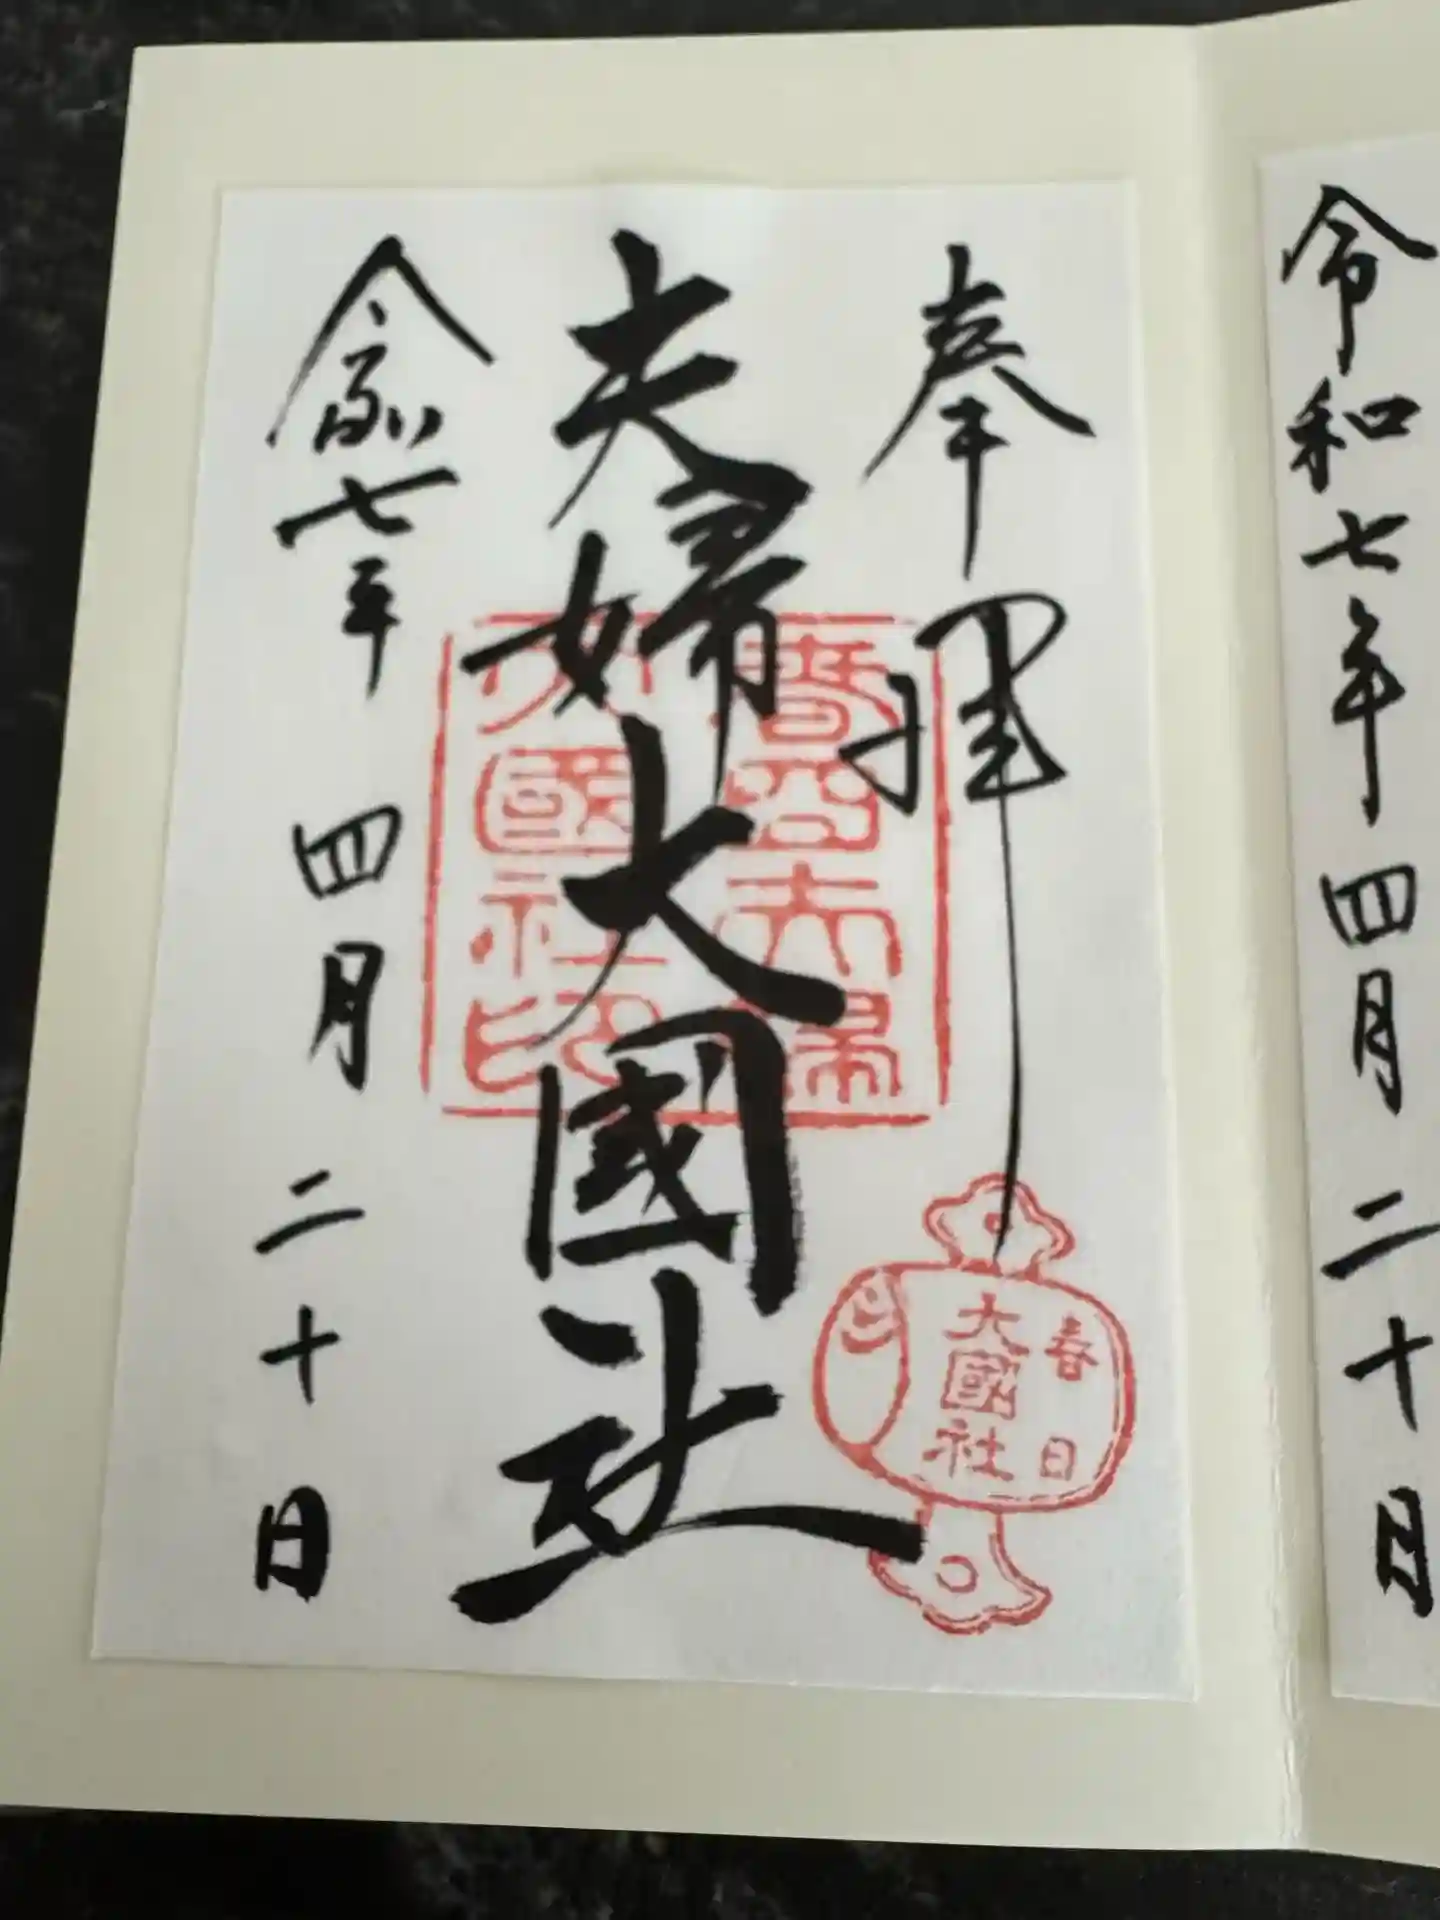 令和七年四月二十日
奉拝
夫婦大國社
令和七年 四月 二十日
春日
大國社